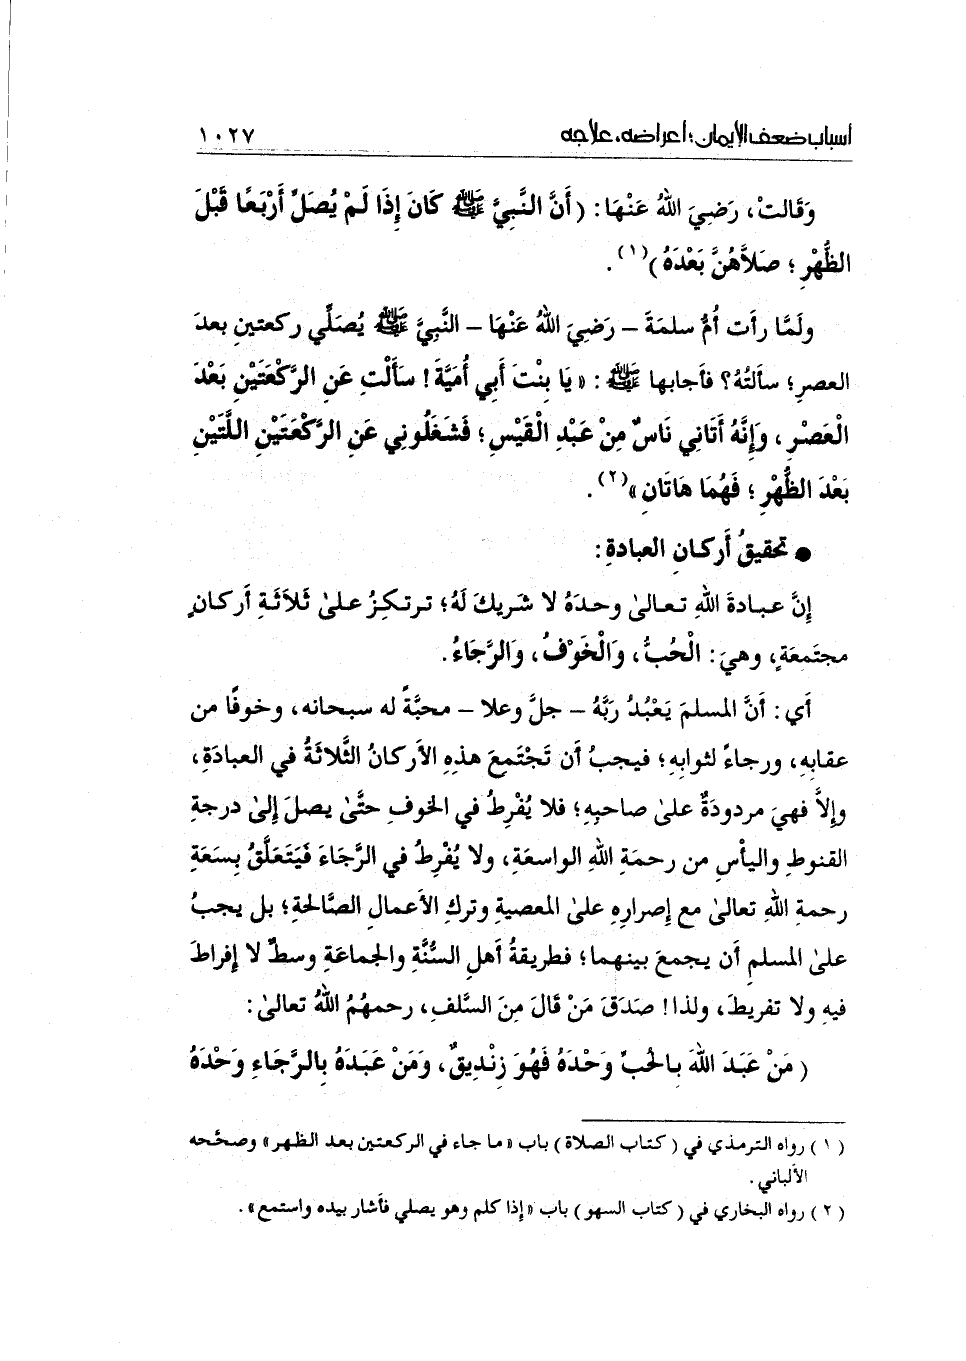 أسباب ضعف الإيمان؛ أعراضه، علاجه ١٠٢٧
وَقَالتْ، رَضِيَ اللهُ عَنْهَا: (أَنَّ النَّبِيَّ ﷺ كَانَ إِذَا لَمْ يُصَلِّ أَرْبَعًا قَبْلَ
الظُّهْرِ؛ صَلاَّهُنَّ بَعْدَهُ)(١).
ولَمَّا رأت أُمُّ سلمةَ – رَضِيَ اللهُ عَنْهَا – النَّبِيَّ ﷺ يُصَلِّي ركعتينِ بعدَ
العصرِ؛ سألتْهُ؟ فأجابها ﷺ: «يَا بِنْتَ أَبِي أُمَيَّةَ! سَأَلْتِ عَنِ الرَّكْعَتَيْنِ بَعْدَ
الْعَصْرِ، وَإِنَّهُ أَتَانِي نَاسٌ مِنْ عَبْدِ الْقَيْسِ؛ فَشَغَلُونِي عَنِ الرَّكْعَتَيْنِ اللَّتَيْنِ
بَعْدَ الظُّهْرِ؛ فَهُمَا هَاتَانِ»(٢).
● تحقيقُ أَركانِ العبادةِ:
إنَّ عبادةَ اللهِ تعالىٰ وحدَهُ لا شريكَ لَهُ؛ ترتكزُ علىٰ ثَلاَثَةِ أَركانٍ
مجتَمعَةٍ، وهيَ: الْحُبُّ، وَالْخَوْفُ، وَالرَّجَاءُ.
أي: أَنَّ المسلمَ يَعْبُدُ رَبَّهُ – جلَّ وعلا – محبَّةً له سبحانه، وخوفًا من
عقابِهِ، ورجاءً لثوابِهِ؛ فيجبُ أَن تَجْتَمِعَ هذهِ الأَركانُ الثَّلاثَةُ في العبادَةِ،
وإلاَّ فهيَ مردودَةٌ علىٰ صاحبِهِ؛ فلا يُفْرِطُ في الخوفِ حتَّىٰ يصلَ إلىٰ درجةِ
القنوطِ واليأْسِ من رحمَةِ اللهِ الواسعَةِ، ولا يُفْرِطُ في الرَّجَاءَ فَيَتَعَلَّقُ بِسَعَةِ
رحمةِ اللهِ تعالىٰ مع إصرارِهِ علىٰ المعصيةِ وتركِ الأَعمالِ الصَّالحةِ؛ بل يجبُ
علىٰ المسلمِ أَن يجمعَ بينهما؛ فطريقةُ أَهلِ السُّنَّةِ والجماعَةِ وسطٌ لا إفراطَ
فيهِ ولا تفريطَ، ولذا! صَدَقَ مَنْ قَالَ مِنَ السَّلفِ، رحمهُمُ اللهُ تعالىٰ:
(مَنْ عَبَدَ اللهَ بِالحُبِّ وَحْدَهُ فَهُوَ زِنْدِيقٌ، وَمَنْ عَبَدَهُ بِالرَّجَاءِ وَحْدَهُ
(١) رواه الترمذي في (كتاب الصلاة) باب «ما جاء في الركعتين بعد الظهر» وصحَّحه
الألباني.
(٢) رواه البخاري في (كتاب السهو) باب «إذا كلم وهو يصلي فأشار بيده واستمع».